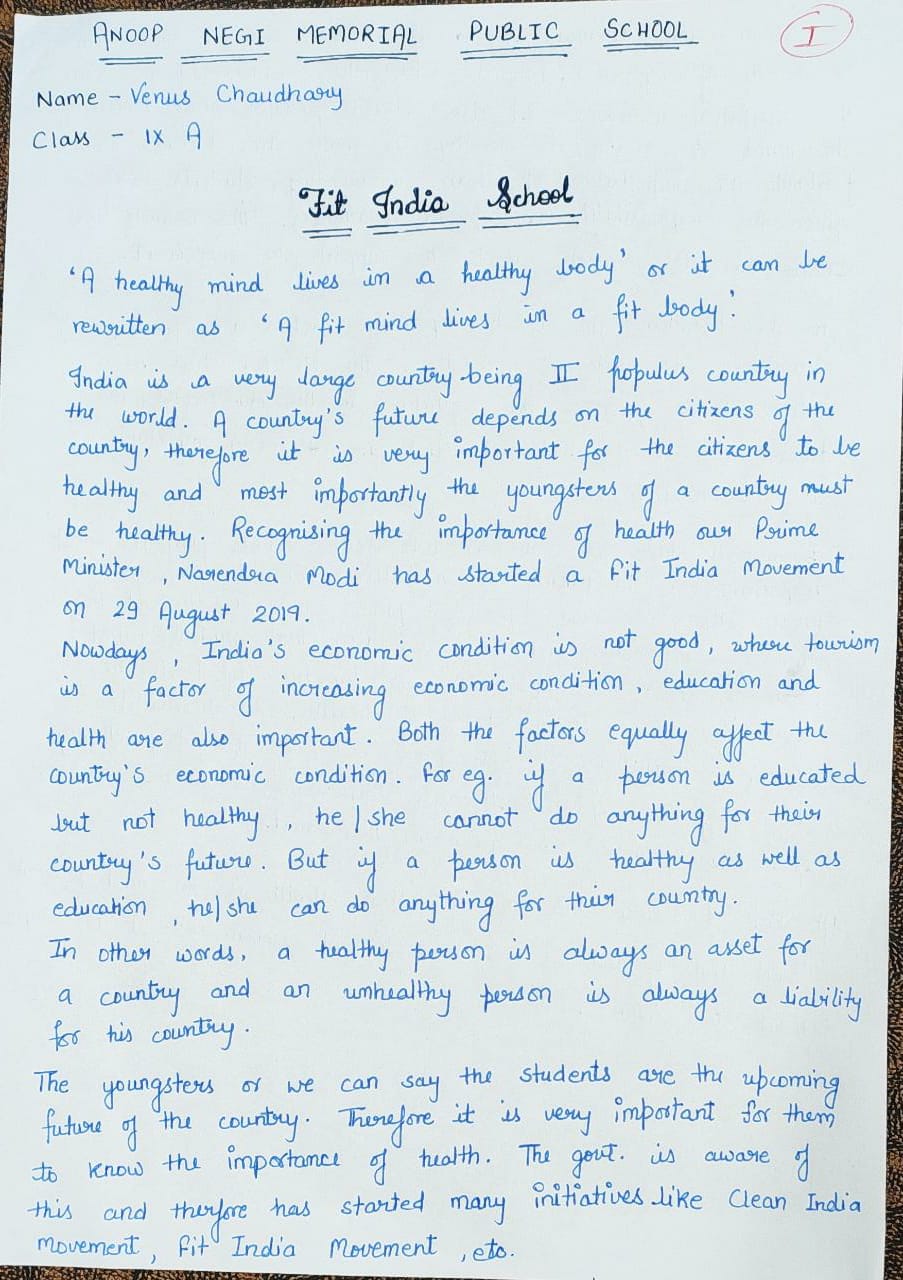 ANOOP NEGI MEMORIAL PUBLIC SCHOOL
I
Name - Venus Chaudhary
Class - IX A
Fit India School
'A healthy mind lives in a healthy body' or it can be
rewritten as 'A fit mind lives in a fit body'.
India is a very large country being II populus country in
the world. A country's future depends on the citizens of the
country, therefore it is very important for the citizens to be
healthy and most importantly the youngsters of a country must
be healthy. Recognising the importance of health our Prime
Minister, Narendra Modi has started a Fit India Movement
on 29 August 2019.
Nowdays, India's economic condition is not good, where tourism
is a factor of increasing economic condition, education and
health are also important. Both the factors equally affect the
country's economic condition. For eg. if a person is educated
but not healthy, he/she cannot do anything for their
country's future. But if a person is healthy as well as
education, he/she can do anything for their country.
In other words, a healthy person is always an asset for
a country and an unhealthy person is always a liability
for his country.
The youngsters or we can say the students are the upcoming
future of the country. Therefore it is very important for them
to know the importance of health. The govt. is aware of
this and therfore has started many initiatives like Clean India
Movement, Fit India Movement, etc.